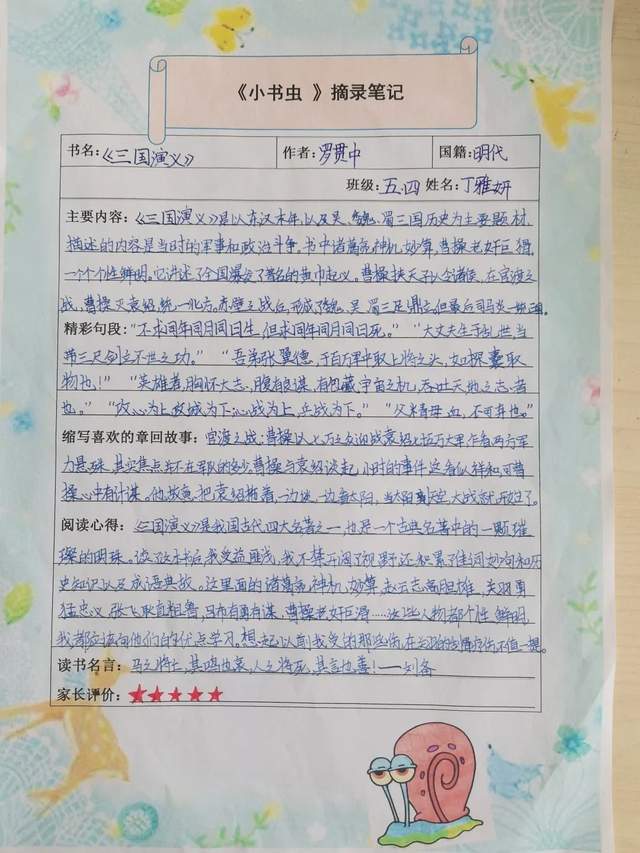 《小书虫 》摘录笔记
书名:《三国演义》 作者:罗贯中 国籍:明代
班级:五.四 姓名:丁雅妍
主要内容:《三国演义》是以东汉末年,以及吴、魏、蜀三国历史为主要题材,
描述的内容是当时的军事和政治斗争。书中诸葛亮神机妙算,曹操老奸巨猾,
一个个个性鲜明。它讲述了全国爆发了著名的黄巾起义。曹操挟天子以令诸侯,在官渡之
战,曹操灭袁绍,统一北方。赤壁之战后,形成了魏、吴、蜀三足鼎立,但最后司马炎一统三国。
精彩句段:“不求同年同月同日生,但求同年同月同日死。” “大丈夫生于乱世,当
带三尺剑立不世之功。” “吾弟张翼德,于百万军中取上将之头,如探囊取
物也!” “英雄者,胸怀大志,腹有良谋,有包藏宇宙之机,吞吐天地之志者
也。” “攻心为上,攻城为下;心战为上,兵战为下。” “父精母血,不可弃也。”
缩写喜欢的章回故事:官渡之战:曹操以七万之众迎战袁绍七十万大军,作者两方军
力悬殊,其实焦点并不在军队的多少,曹操与袁绍谈起小时的事件
操心中有计谋。他故意把袁绍拖着,一边说一边看太阳,当太阳大战就开始了。
阅读心得:《三国演义》是我国古代四大名著之一,也是一个古典名著中的一颗璀
璨的明珠。读了这本书后我受益匪浅,我不禁开阔了视野还积累了佳词妙句和历
史知识以及成语典故。这里面的诸葛亮神机妙算,赵云志高胆雄,关羽勇
猛忠义,张飞耿直粗鲁,马布有勇有谋,曹操老奸巨滑……这些人物都个性鲜明,
我都应该向他们的优点学习。想起以前我受的那些伤,在不值一提。
读书名言:鸟之将亡,其鸣也哀,人之将死,其言也善!——刘备
家长评价:★★★★★